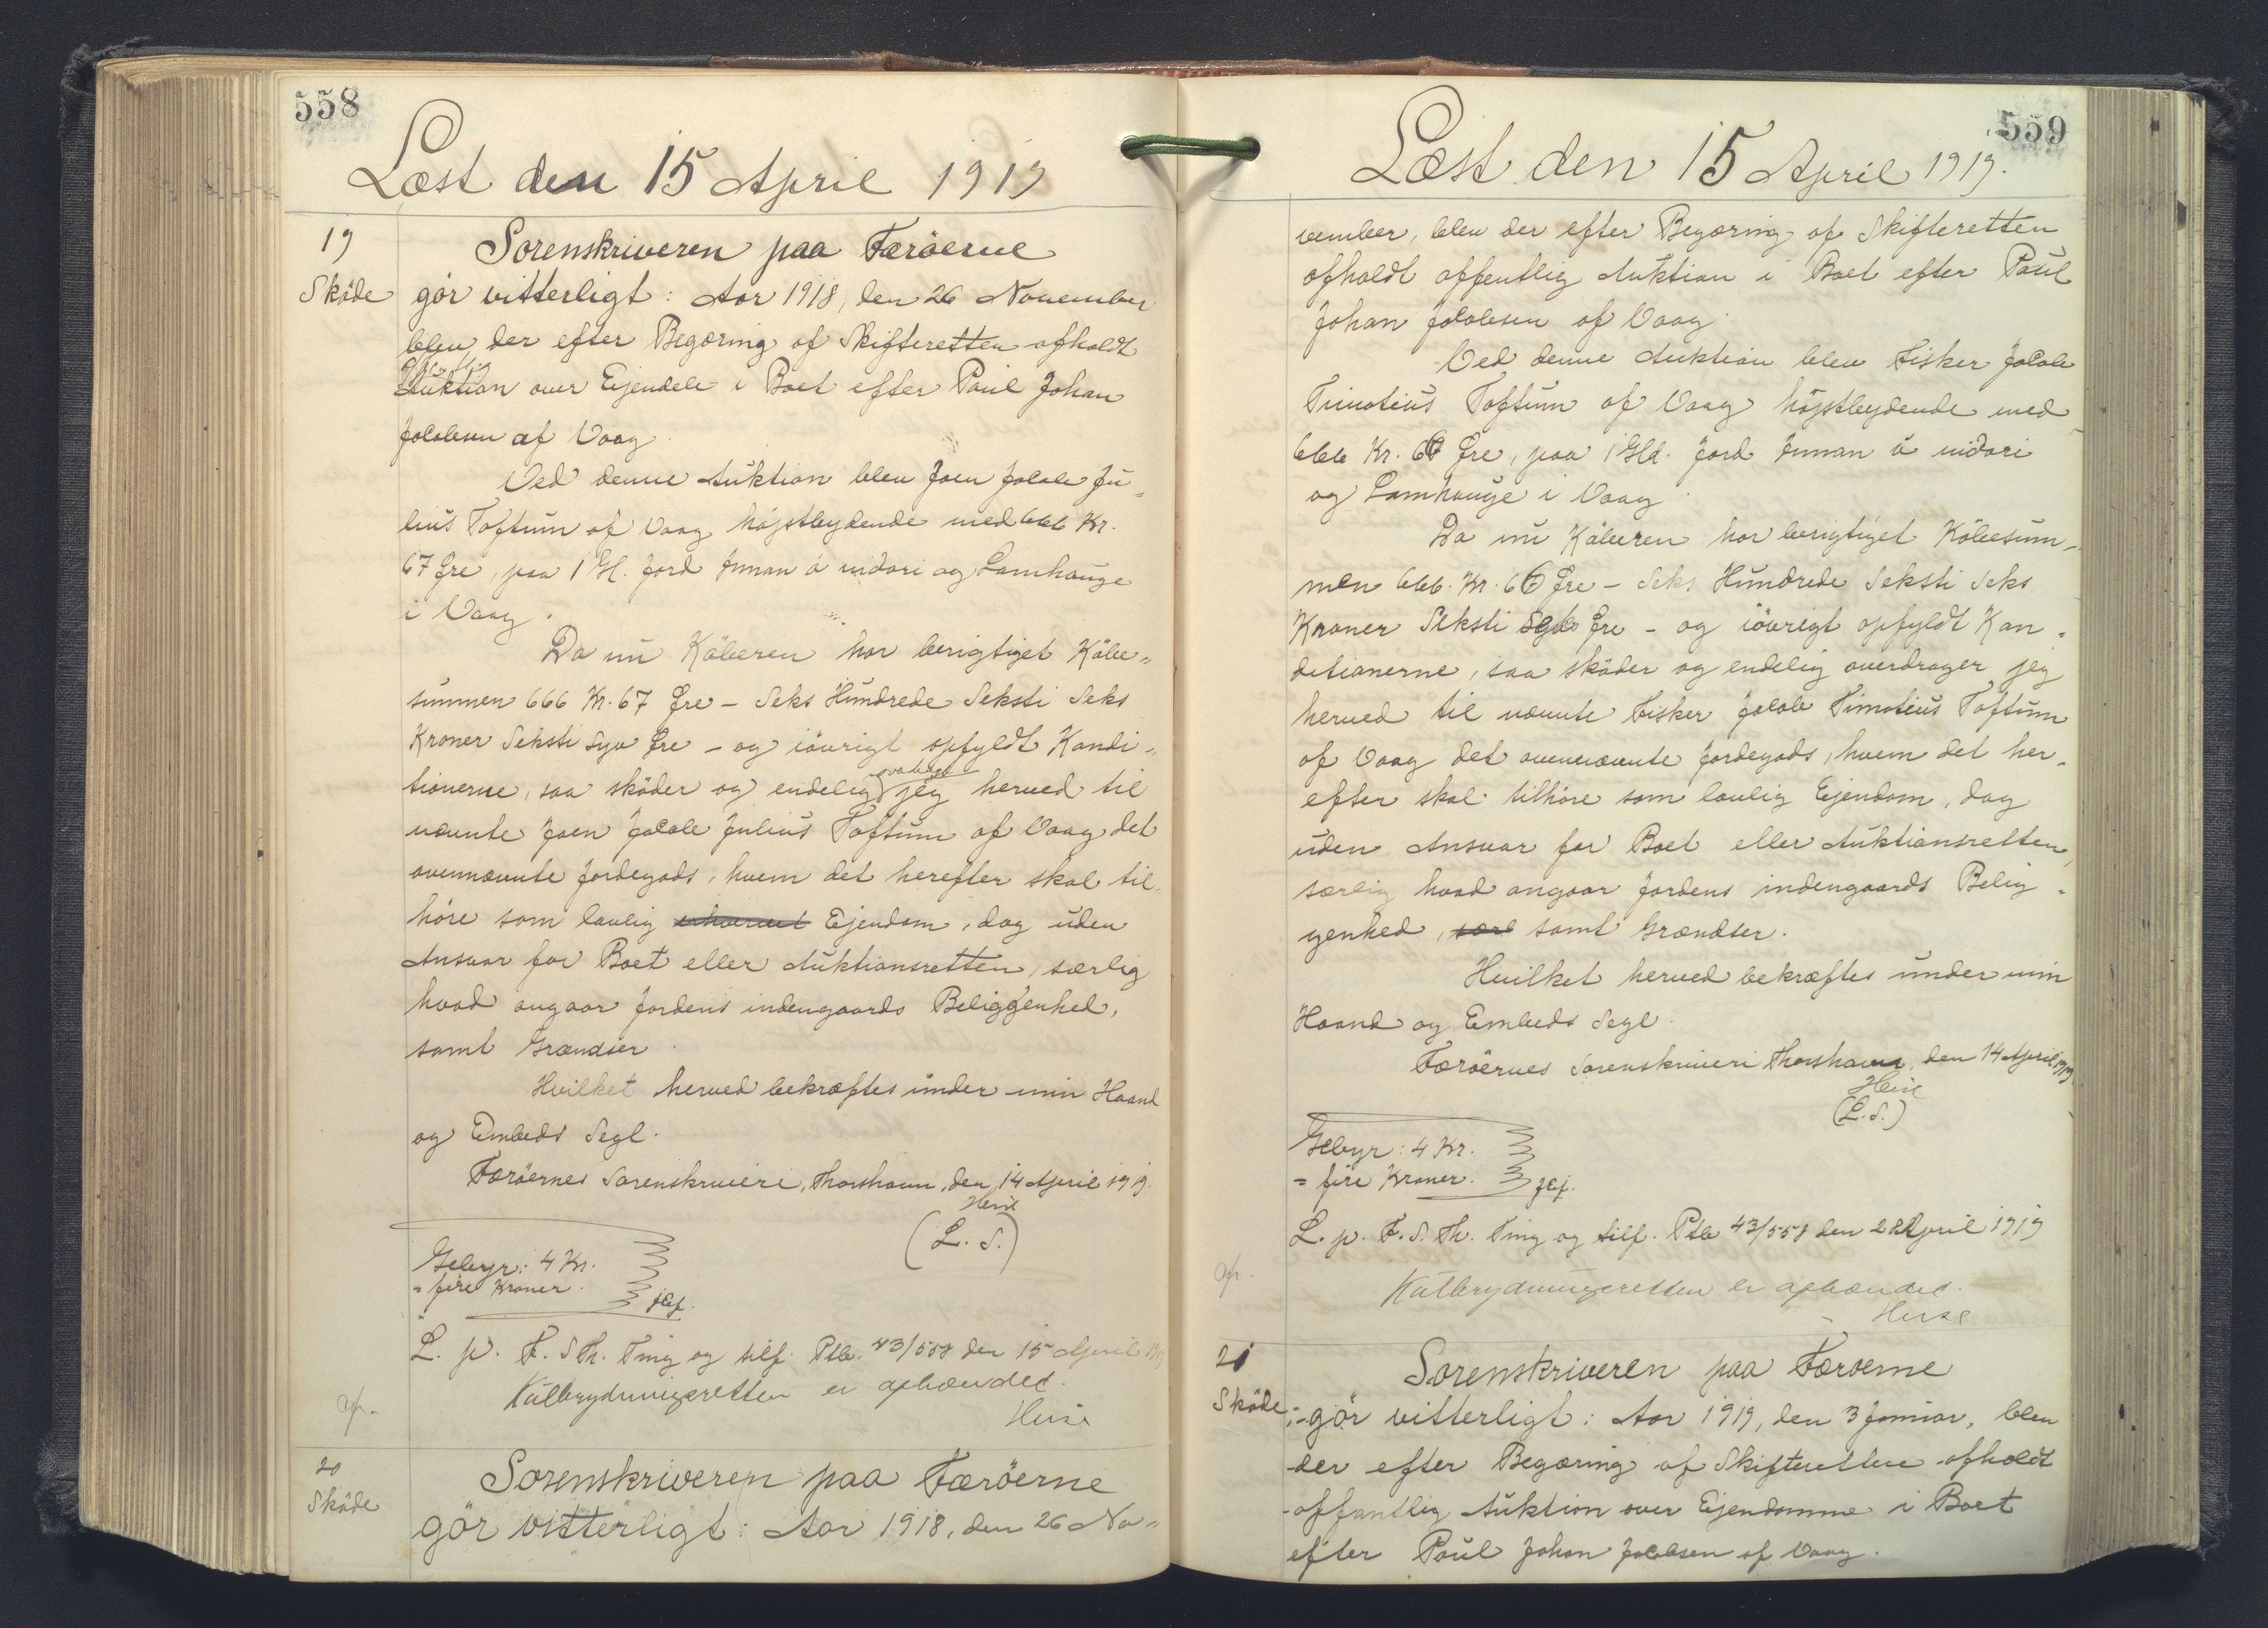 558
Læst den 15 April 1919
19
Sköde
Sorenskriveren paa Færöerne
gör vitterligt: Aar 1918, den 26 November
blev der efter Begæring af Skifteretten afholdt
offentlig
Auktion over Ejendele i Boet efter Poul Johan
Jacobsen af Vaag.
Ved denne Auktion blev Joen Jacob Ju=
lius Toftum af Vaag höjstbydende med 666 Kr.
67 Øre, paa 1 Gl. Jord Innan á nidari og Lamhauge
i Vaag.
Da nu Köberen har berigtiget Köbe=
summen 666 Kr. 67 Øre - Seks Hundrede Seksti Seks
Kroner Seksti Syv Øre - og iövrigt opfyldt Kondi=
tionerne, saa sköder og endelig jeg herved til
nævnte Joen Jacob Julius Toftum af Vaag det
ovennævnte Jordegods, hvem det herefter skal til=
höre som lovlig erhvervet Ejendom, dog uden
Ansvar for Boet eller Auktionsretten, særlig
hvad angaar Jordens indengaards Beliggenhed,
samt Grændser.
Hvilket herved bekræftes under min Haand
og Embeds Segl.
Færöernes Sorenskriveri, Thorshavn, den 14 April 1919.
(L. S.)
Gebyr: 4 Kr.
= fire Kroner.
L. p. F. S. Th. Ting og tilf. Ptb. 43/558 den 15 April 1919
Udbrydningsretten er afhændet.
20
Sköde
Sorenskriveren paa Færöerne
gör vitterligt: Aar 1918, den 26 No=
559
Læst den 15 April 1919.
vember, blev der efter Begæring af Skifteretten
afholdt offentlig Auktion i Boet efter Poul
Johan Jacobsen af Vaag.
Ved denne Auktion blev Fisker Jacob
Timotius Toftum af Vaag höjstbydende med
666 Kr. 66 Øre, paa 1 Gld. Jord Innan á nidari
og Lamhauge i Vaag.
Da nu Köberen har berigtiget Köbesum=
men 666. Kr. 66 Øre - Seks Hundrede Seksti Seks
Kroner Seksti Seks Øre - og iövrigt opfyldt Kon=
ditionerne, saa sköder og endelig overdrager jeg
herved til nævnte Fisker Jacob Timotius Toftum
af Vaag det ovennævnte Jordegods, hvem det her=
efter skal tilhöre som lovlig Ejendom, dog
uden Ansvar for Boet eller Auktionsretten,
særlig hvad angaar Jordens indengaards Belig=
genhed, sært samt Grændser.
Hvilket herved bekræftes under min
Haand og Embeds Segl.
Færöernes Sorenskriveri Thorshavn, den 14 April 1919
(L. S.)
Gebyr: 4 Kr.
= fire Kroner.
L. p. F. S. Th. Ting og tilf. Ptb 43/558 den 22 April 1919
Udbrydningsretten er afhændet.
21
Sköde
Sorenskriveren paa Færoerne
gör vitterligt: Aar 1919, den 3 Januar, blev
der efter Begæring af Skifteretten afholdt
offentlig Auktion over Ejendomme i Boet
efter Poul Johan Jacobsen af Vaag.